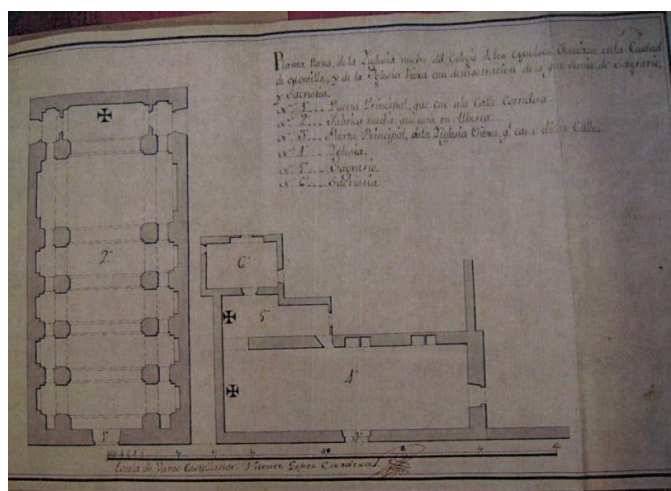 Planta llana, de la Yglesia nueba del Colegio de los expulsos Jesuitas en la Ciudad
de y de la Yglesia Viexa con demostracion de la que servia de Sagrario,
y Sacristia.
Nº 1 Puerta Principal, que cae ala Calle Corredera.
Nº 2 Fabrica nueba que esta en Alberca.
Nº 3 Puerta Principal, dela Yglesia Viexa, q.e cae a dicha Calle.
Nº 4 Yglesia.
Nº 5 Sagrario.
Nº 6 Sacristia.
2º
6º
5
4º
1º
3º
Escala de Varas Castellanas. Vicente Lopez Cardera